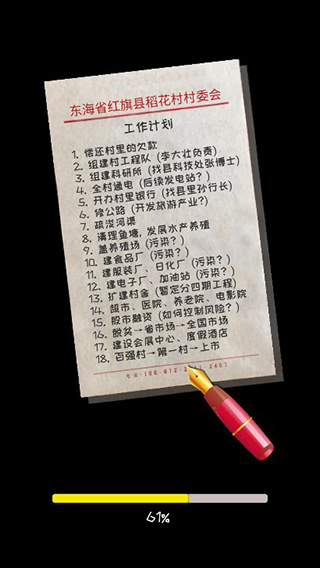 东海省红旗县稻花村村委会
工作计划
1. 偿还村里的欠款
2. 组建村工程队（李大壮负责）
3. 组建科研所（找县科技处张博士）
4. 全村通电（后续发电站？）
5. 开办村里银行（找县里孙行长）
6. 修公路（开发旅游产业？）
7. 疏浚河渠
8. 清理鱼塘，发展水产养殖
9. 盖养殖场（污染？）
10. 建食品厂（污染？）
11. 建服装厂、日化厂（污染？）
12. 建电子厂、加油站（污染？）
13. 扩建村舍（暂定分四期工程）
14. 超市、医院、养老院、电影院
15. 股市融资（如何控制风险？）
16. 脱贫→省市场→全国市场
17. 建设会展中心、度假酒店
18. 百强村→第一村→上市
61%